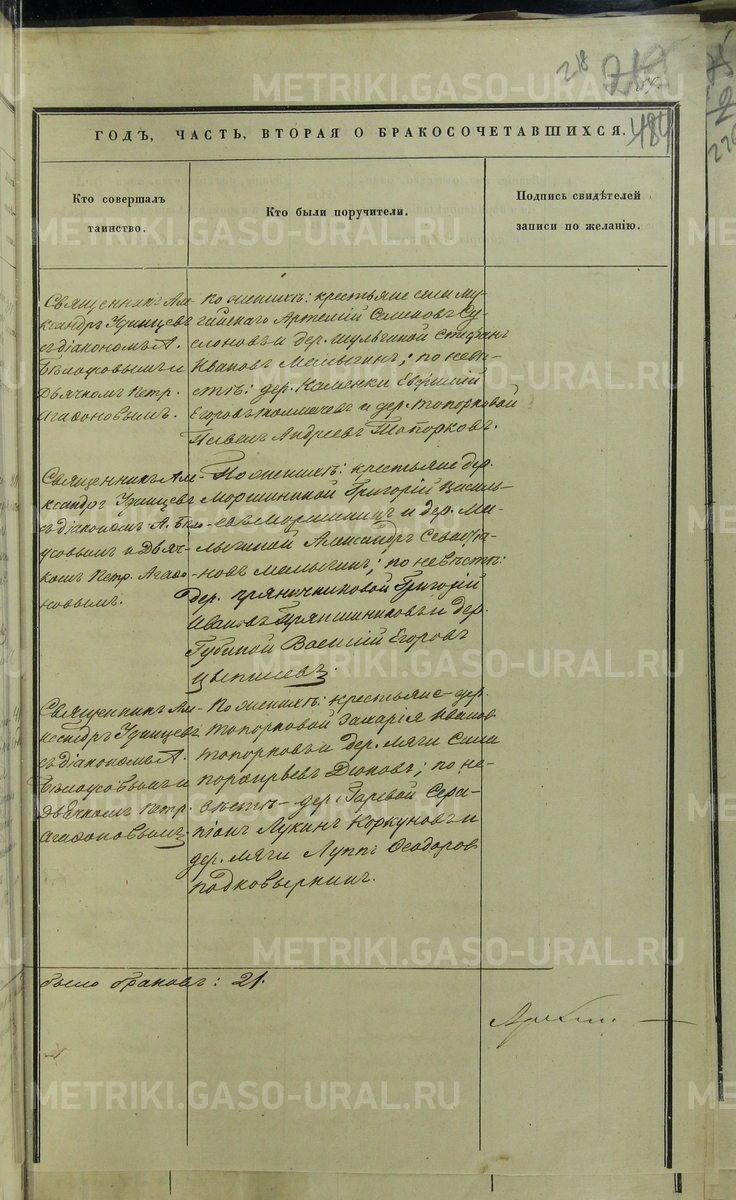 218
484
ГОДЪ, ЧАСТЬ, ВТОРАЯ О БРАКОСОЧЕТАВШИХСЯ.
Кто совершалъ
таинство.
Кто были поручители.
Подпись свидѣтелей
записи по желанію.
Священникъ Але-
ксандръ Удинцевъ
съ діакономъ А.
Бѣлоусовымъ и
Дьячкомъ Петр.
Агаѳоновымъ.
По женихѣ: крестьяне села Му-
гайскаго Артемій Симоновъ Су-
слоновъ и дер. Шульгиной Стефанъ
Ивановъ Мелызинъ; по невѣ-
стѣ: дер. Каменки Евфимій
Егоровъ Толмачевъ и дер. Топорковой
Павелъ Андреевъ Топорковъ.
Священникъ Але-
ксандръ Удинцевъ
съ діакономъ А. Бѣло-
усовымъ и Дьяч-
комъ Петр. Агаѳо-
новымъ.
По женихѣ: крестьяне дер.
Моршининой Григорій Василь-
евъ Моршининъ и дер.
Александръ
по невѣстѣ:
дер. Пряничниковой Григорій
Ивановъ Пряничниковъ и дер.
Губиной Василій Егоровъ
Священникъ Але-
ксандръ Удинцевъ
съ діакономъ А.
Бѣлоусовымъ и
Дьячкомъ Петр.
Агаѳоновымъ.
По женихѣ: крестьяне дер.
Топорковой Захарія Ивановъ
Топорковъ и дер. Мяги Сила
Порфирьевъ Дюковъ; по не-
вѣстѣ - дер. Гаевой Сера-
піонъ Лукинъ Коркуновъ и
дер. Мяги Луппъ Ѳеодоровъ
Подковыркинъ.
было браковъ: 21.
METRIKI.GASO-URAL.RU